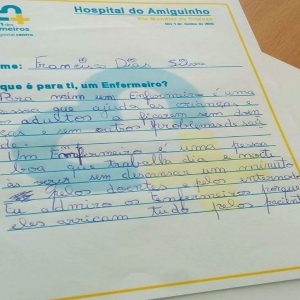 Hospital do Amiguinho
Dia Mundial da Criança
dos
nfermeiros
me: Francisca Dias Silva
que é para ti, um Enfermeiro?
Para mim um Enfermeiro é uma
soa que ajuda as crianças e
adultos a ficarem sem doen
ças e sem outros problemas de saú
de.
Um Enfermeiro é uma pessoa
boa que trabalha dia e noite
as vezes sem descansar um minuto
pelos doentes e pelos internados
Eu admiro os Enfermeiros porque
eles arriscam tudo pelos pacient